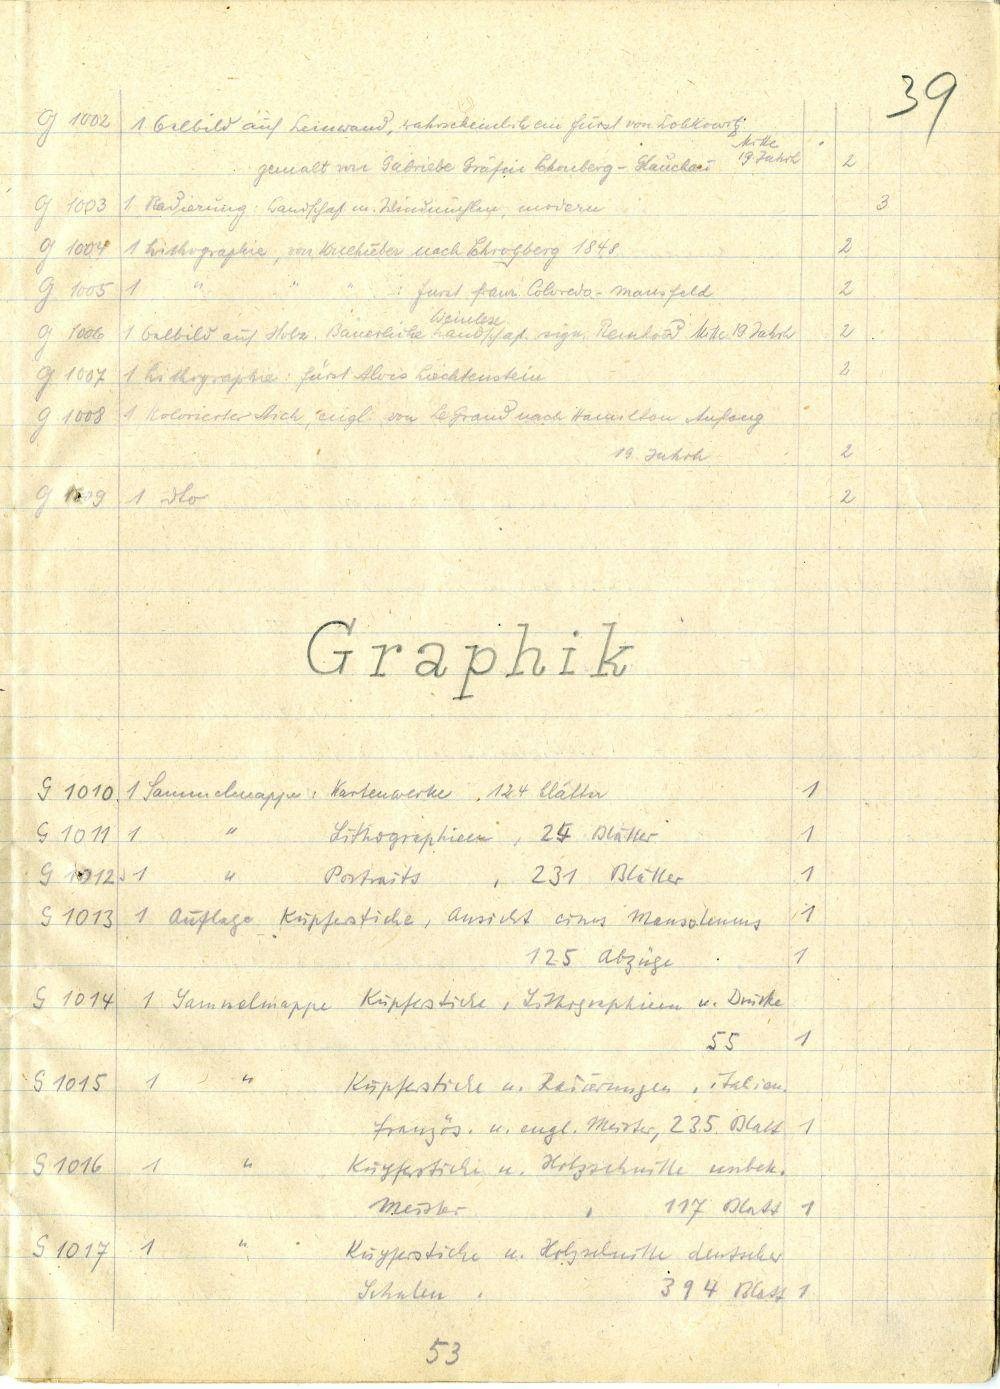 39
G 1002 1 Oelbild auf Leinwand, wahrscheinlich ein Fürst von Lobkowitz
Mitte
gemalt von Gabriele Gräfin Schönberg-Glauchau 19. Jahrh 2
G 1003 1 Radierung: Landschaft m. Windmühlen, modern 3
G 1004 1 Lithographie, von Kriehuber nach Schrotzberg 1848 2
G 1005 1 " " " : Fürst Franz Coloredo-Mansfeld 2
Weinlese
G 1006 1 Oelbild auf Holz, Bäuerliche Landschaft sign. Reinhold Mitte 19 Jahrh 2
G 1007 1 Lithographie: Fürst Alois Liechtenstein 2
G 1008 1 Kolorierter Stich, engl. von Le Grand nach Hamilton Anfang
19. Jahrh 2
G 1009 1 dto 2
Graphik
G 1010 1 Sammelmappe: Kartenwerke, 124 Blätter 1
G 1011 1 " Lithographieen, 24 Blätter 1
G 1012 1 " Portraits, 231 Blätter 1
G 1013 1 Auflage Kupferstiche, Ansicht eines Mausoleums 1
125 Abzüge 1
G 1014 1 Sammelmappe Kupferstiche, Lithographieen u. Drucke
55 1
G 1015 1 " Kupferstiche u. Radierungen, italien.
französ. u. engl. Meister, 235 Blatt 1
G 1016 1 " Kupferstiche u. Holzschnitte unbek.
Meister, 117 Blatt 1
G 1017 1 " Kupferstiche u. Holzschnitte deutscher
Schulen, 394 Blatt 1
53